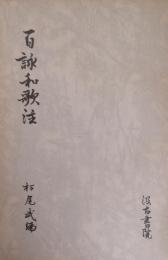 百詠和歌注
栃尾武編
汲古書院